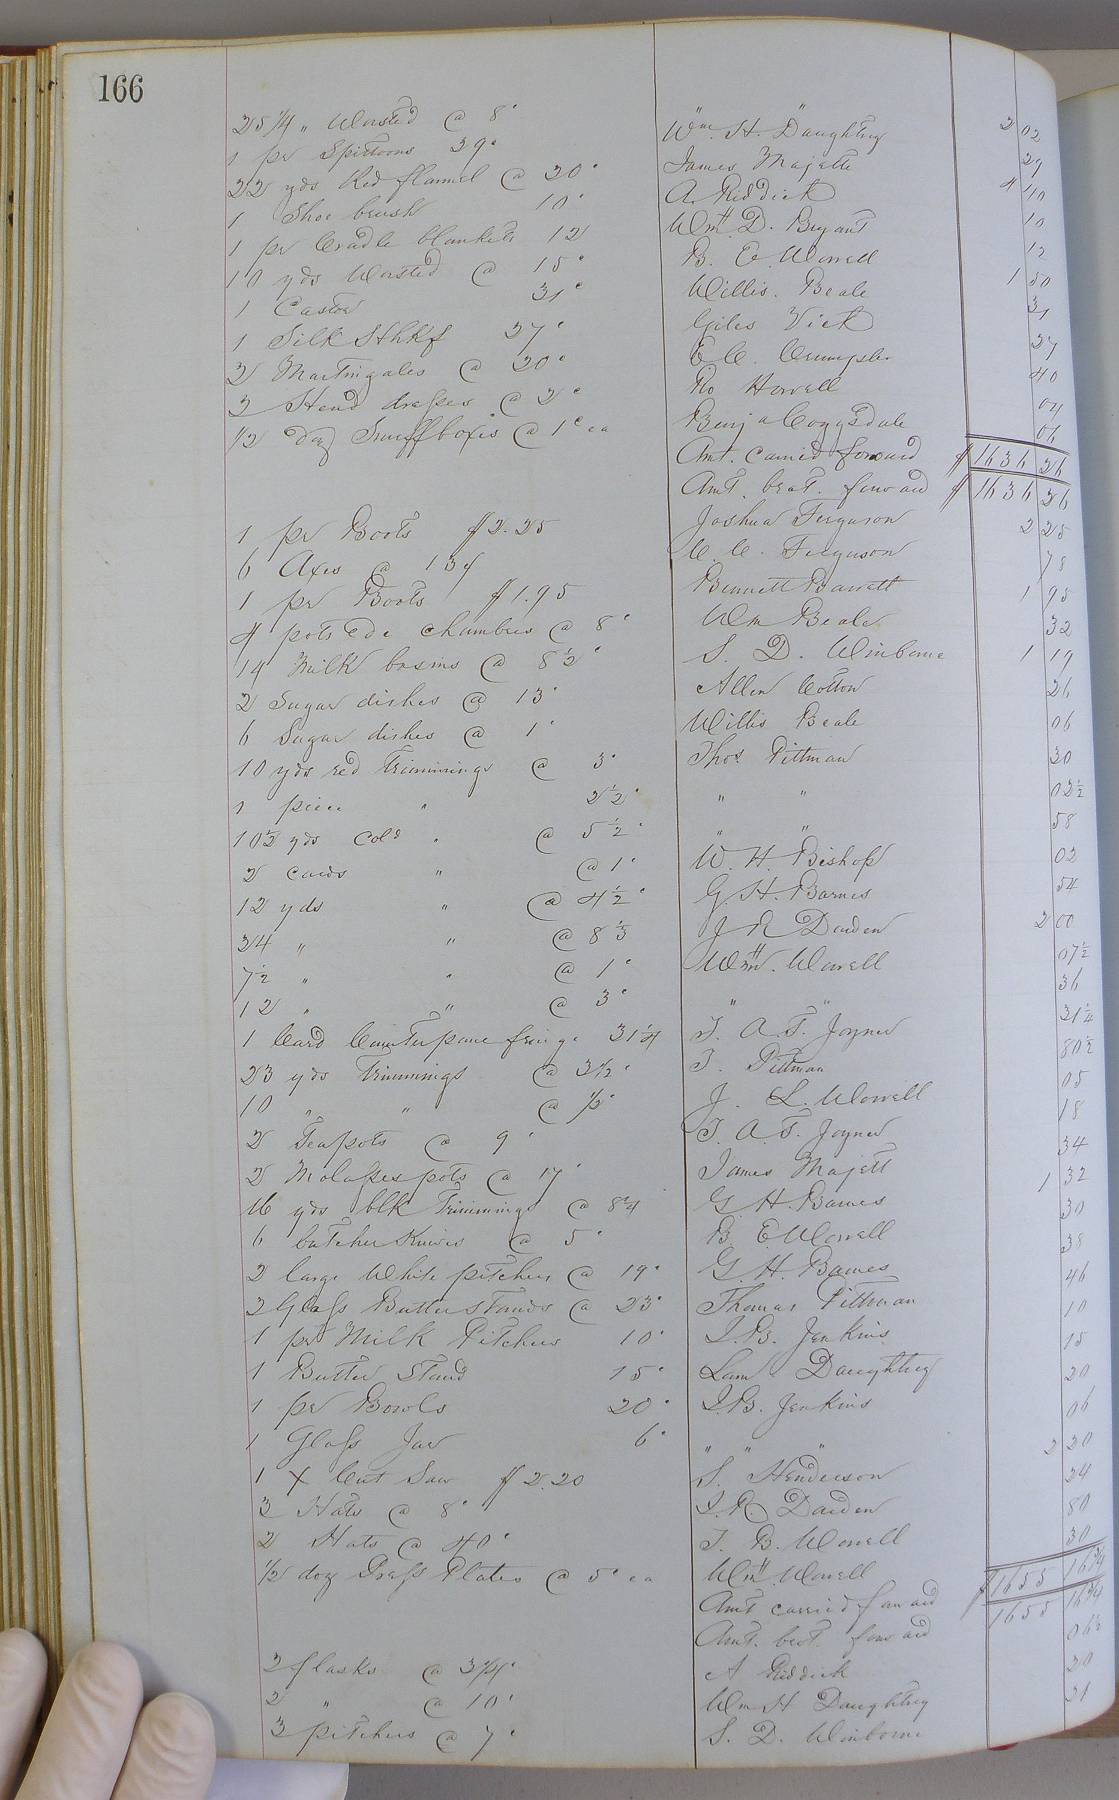 166
25 1/4 " Worsted @ 8c " " 2 02
1 pr Spittoons 29c Wm. H. Daughtrey 29
22 yds Red flannel @ 20c James Majette 4 40
1 Shoe brush 10c A. Riddick 10
1 pr Cradle blankets 12 Wm. D. Bryant 12
10 yds Worsted @ 15c B. E. Worrell 1 50
1 Castor 31c Willis. Beale 31
1 Silk Hhkf 37c Giles Vick 37
2 Martingales @ 20c E. C. Crumpler 40
2 Head dresses @ 2c Ro Howell 04
1/2 doz Snuff boxes @ 1c ea Benja Coggsdale 06
Amt. carried forward $ 1636 26
Amt. brot. forward $ 1636 26
1 pr Boots $2.25 Joshua Ferguson 2 25
6 Axes @ 13c C. C. Ferguson 78
1 pr Boots $1.95 Bennett Barrett 1 95
4 pots de chambres @ 8c Wm Beale 32
14 Milk basins @ 8 1/2c S. D. Winborne 1 19
2 Sugar dishes @ 13c Allen Cotton 26
6 Sugar dishes @ 1c Willis Beale 06
10 yds red Trimmings @ 3c Thos. Pittman 30
1 piece " 2 1/2c " " 02 1/2
10 1/2 yds Cold " @ 5 1/2c " " 58
2 cards " @ 1c W. H. Bishop 02
12 yds " @ 4 1/2c G. H. Barnes 54
24 " " @ 8 1/3 J R Darden 2 00
7 1/2 " " @ 1c Wm. Worrell 07 1/2
12 " " @ 3c " " 36
1 Card Counterpane fringe 31 1/4 T. A. T. Joyner 31 1/4
23 yds Trimmings @ 3 1/2c T. Pittman 80 1/2
10 " " @ 1/2c J. L. Worrell 05
2 Teapots @ 9c T. A. T. Joyner 18
2 Molasses pots @ 17c James Majett 34
16 yds blk Trimmings @ 8 1/4 G H. Barnes 1 32
6 butcher Knives @ 5c B. E Worrell 30
2 large White pitchers @ 19c G. H. Barnes 38
2 Glass Butter Stands @ 23c Thomas Pittman 46
1 pr Milk Pitchers 10c I. B. Jenkins 10
1 Butter Stand 15c Lam Daughtrey 15
1 pr Bowls 20c I. B. Jenkins 20
1 Glass Jar 6c " " " 06
1 X Cut Saw $2.20 S. Henderson 2 20
3 Hats @ 8c I. R. Darden 24
2 Hats @ 40c T. B. Worrell 80
1/2 doz Dress Plates @ 5c ea Wm. Worrell 30
Amt carried forward $ 1655 16 3/4
Amt. brot. forward 1655 16 3/4
2 flasks @ 3 1/4c A Riddick 06 1/2
2 " @ 10c Wm H Daughtrey 20
3 pitchers @ 7c S. D. Winborne 21